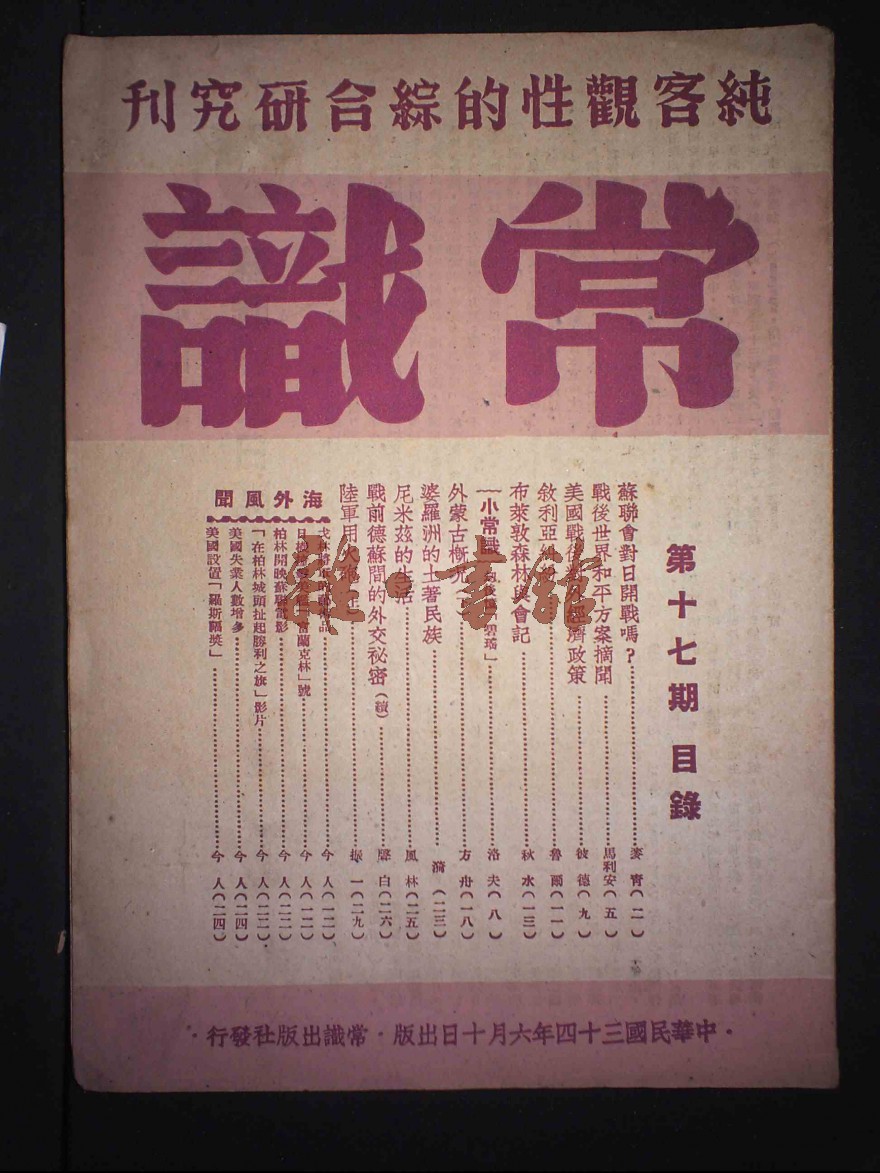 純客觀性的綜合研究刊
常識
第十七期 目錄
蘇聯會對日開戰嗎？ 麥青（二）
戰後世界和平方案摘聞 馬利安（五）
美國戰後 經濟政策 彼德（九）
敘利亞 魯爾（一一）
布萊敦森林與會記 秋水（一三）
小常識 碧瑤」 洛夫（八）
外蒙古概況 方舟（一八）
婆羅洲的土著民族 漪（二三）
尼米茲的生活 風林（二五）
戰前德蘇間的外交祕密（續） 白（二六）
陸軍用火 振一（二九）
海外風聞
戈林 今人（一二）
富蘭克林」號 今人（一二）
柏林開映蘇聯電影 今人（二二）
「在柏林城頭扯起勝利之旗」影片 今人（二二）
美國失業人數增多 今人（二四）
美國設置「羅斯福獎」 今人（二四）
·中華民國三十四年六月十日出版·常識出版社發行·